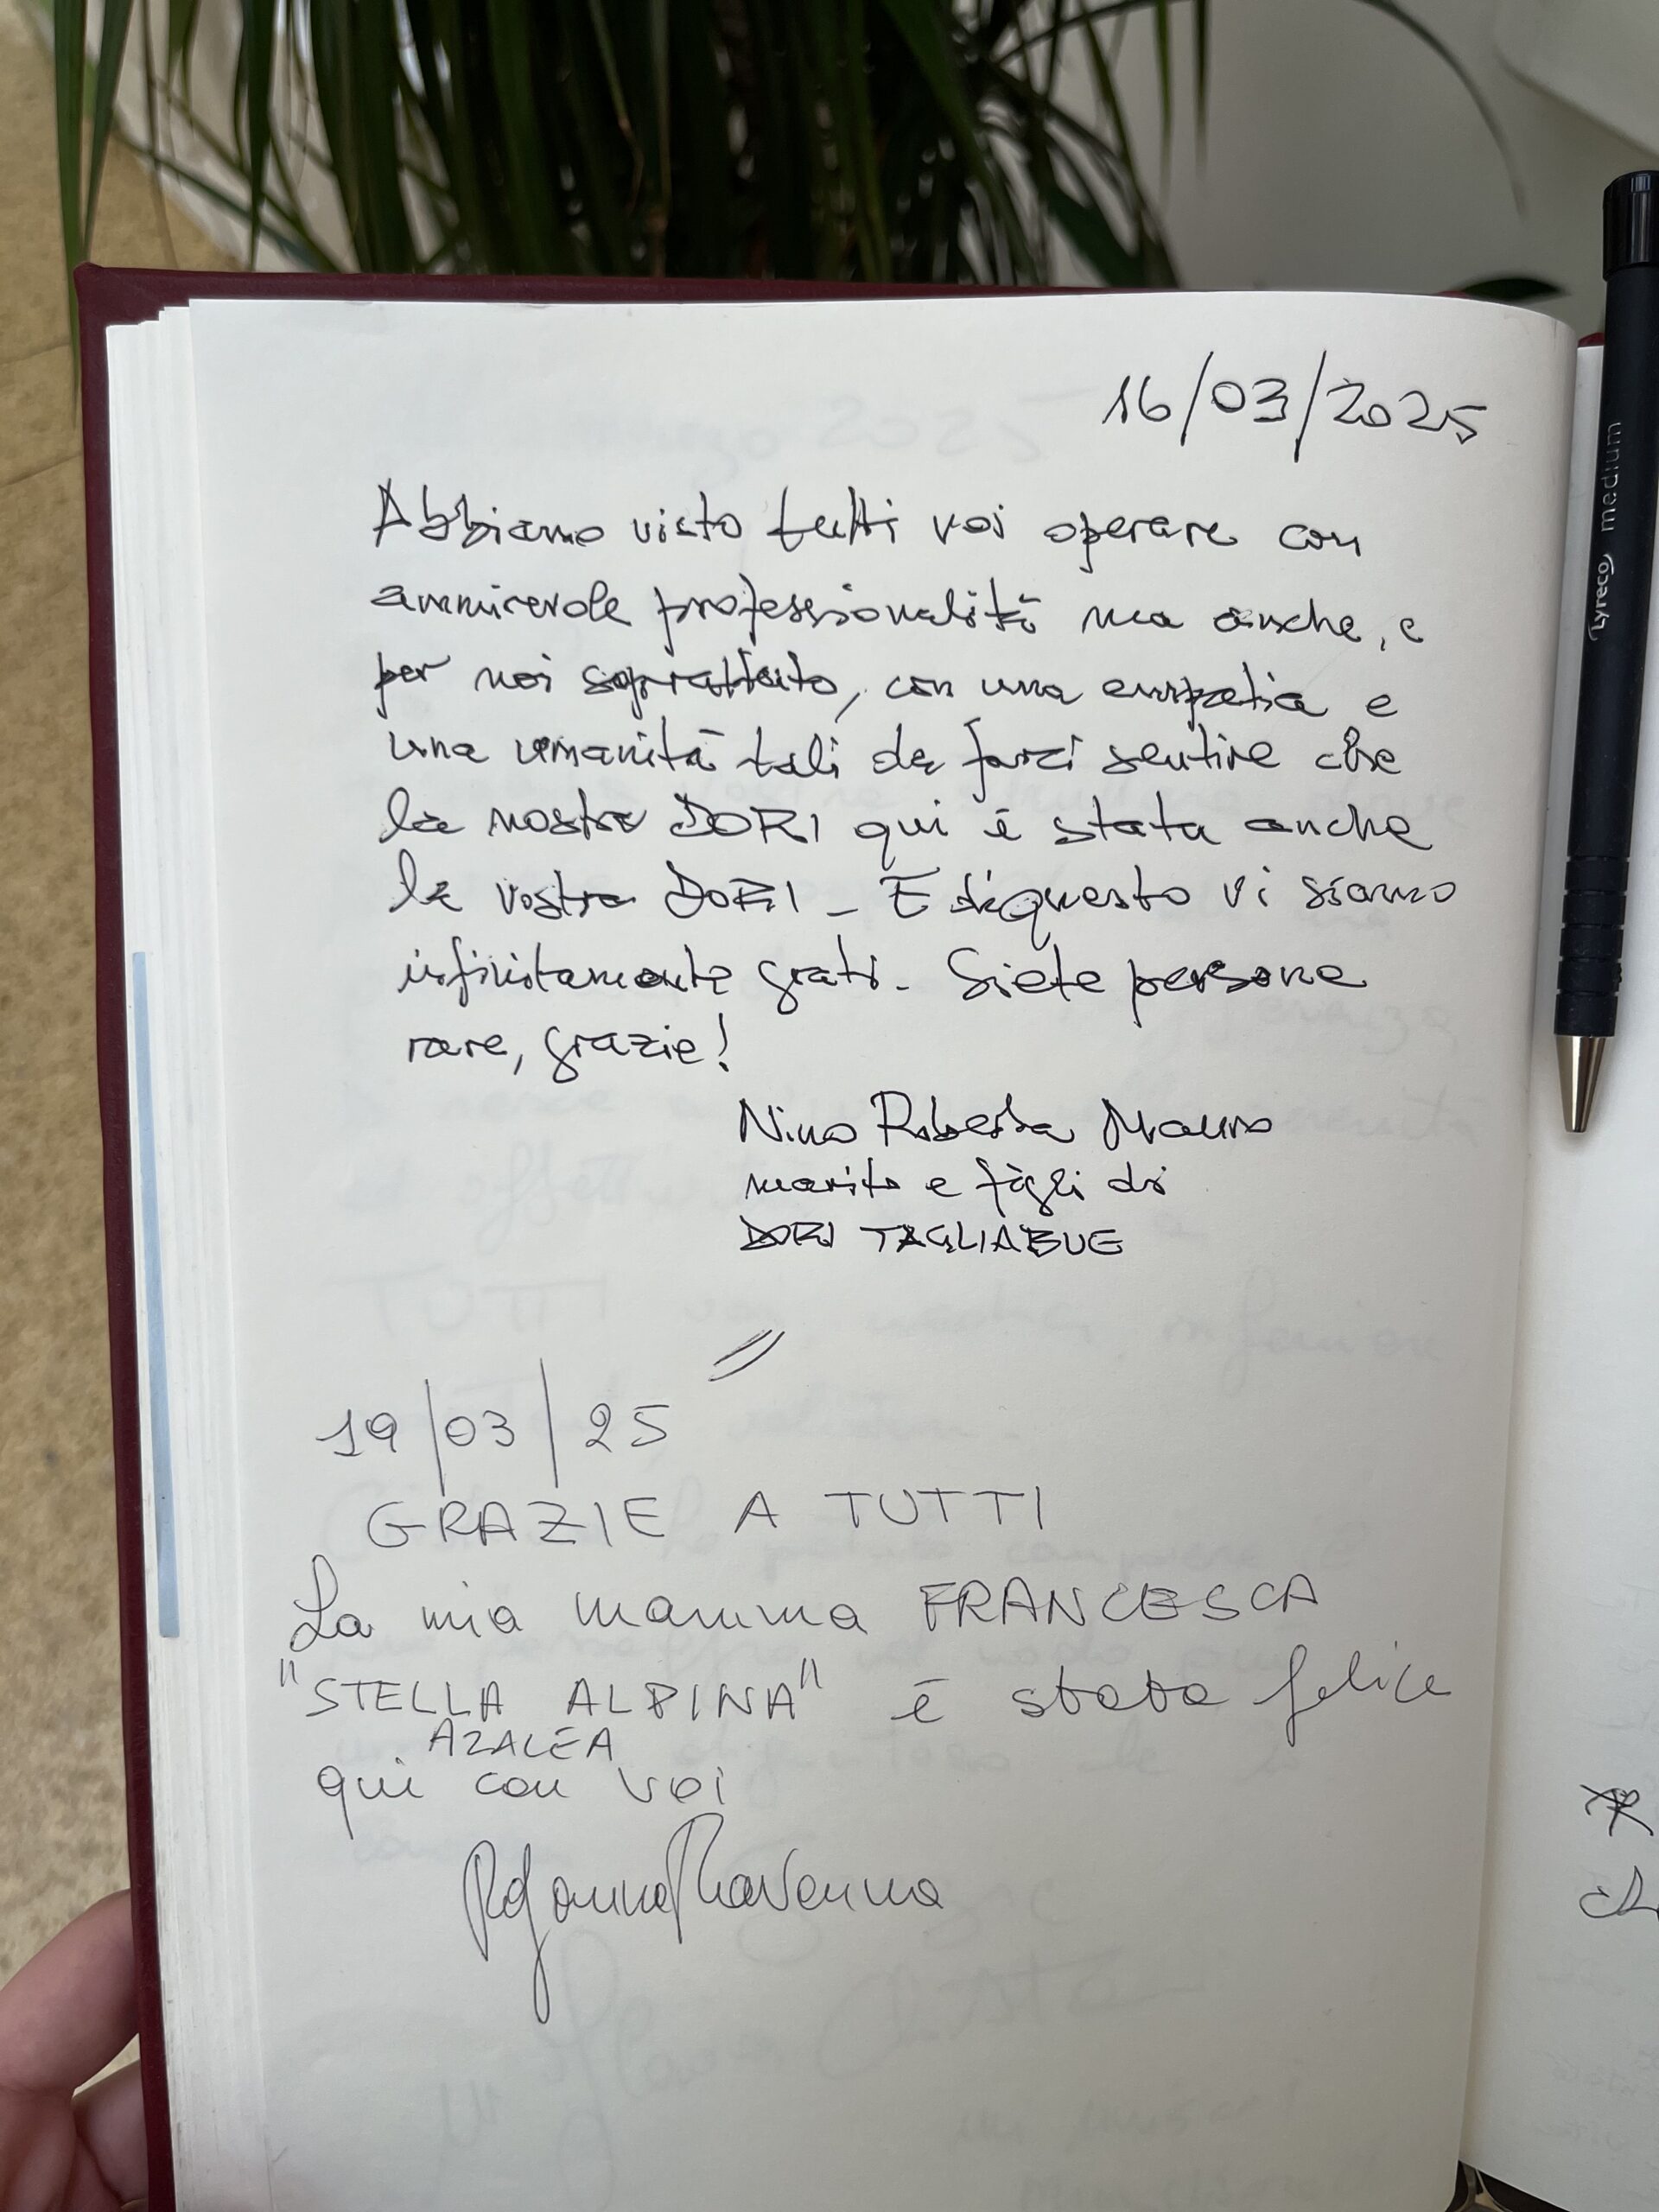 16/03/2025
Abbiamo visto tutti voi operare con
ammirevole professionalità ma anche, e
per noi soprattutto, con una empatia e
una umanità tali da farci sentire che
la nostra DORI qui è stata anche
la vostra DORI - E di questo vi siamo
infinitamente grati. Siete persone
rare, grazie!
Nino Roberta Mauro
marito e figli di
DORI TAGLIABUE
19/03/25
GRAZIE A TUTTI
La mia mamma FRANCESCA
"STELLA ALPINA" è stata felice
AZALEA
qui con voi
Ravenna
Lyreco medium